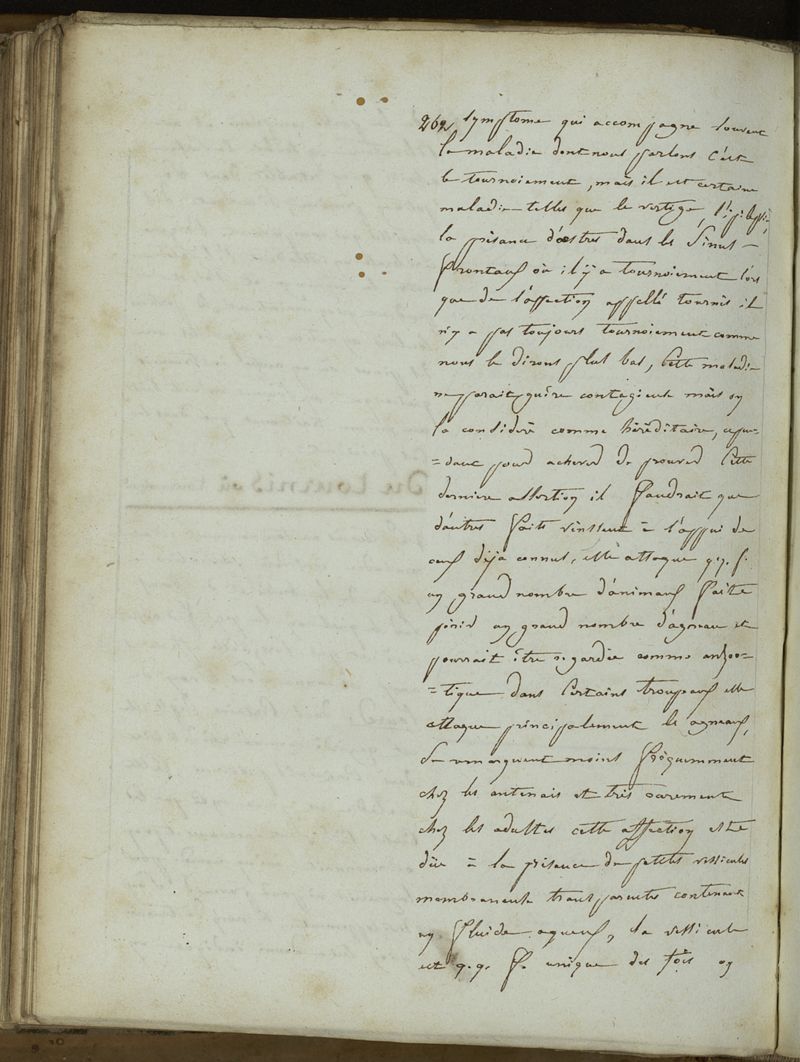 262 symptome qui accompagne souvent
la maladie dont nous parlons c'est
le tournoiement, mais il est certaine
maladie telles que le vertige, l'épilepsie,
la présence d'œstres dans les sinus
frontaux où il ÿ a tournoiement lors
que de l'affection appellé tournis il
n'y a pas toujours tournoiement comme
nous le dirons plus bas, cette maladie
ne parait guère contagieuse mais on
la considéré comme héréditaire, cepen=
=dant pour achever de prouver cette
derniere assertion il faudrait que
d'autres faits vinssent à l'appui de
ceux dêja connus, elle attaque q.q. f.
un grand nombre d'animaux faite
périr un grand nombre d'agneau et
pourrait être regardée comme enzoo=
=tique dans certains troupeaux elle
attaque principalement le agneaux,
se remarquent moins fréquemment
chez les antenais et très rarement
chez les adultes cette affection est
dûe à la présence de petites vessicules
membraneuse transparentes contenant
un fluide aqueux, la vessicule
est q.q. f. unique des fois on
Du tournis où